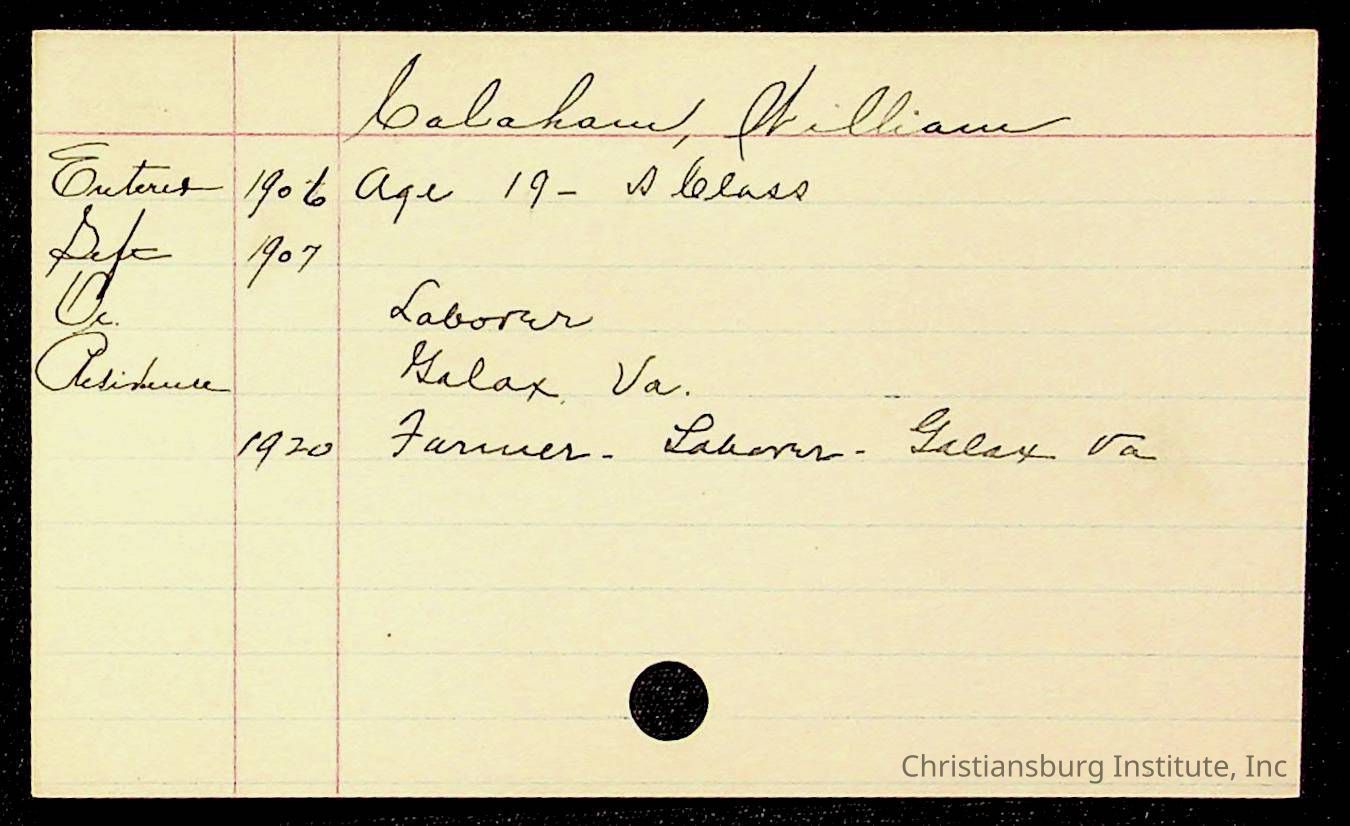 Calaham, William
Entered 1906 Age 19 - A Class
Left 1907
Oc. Laborer
Residence Galax, Va.
1920 Farmer - Laborer - Galax Va
Christiansburg Institute, Inc